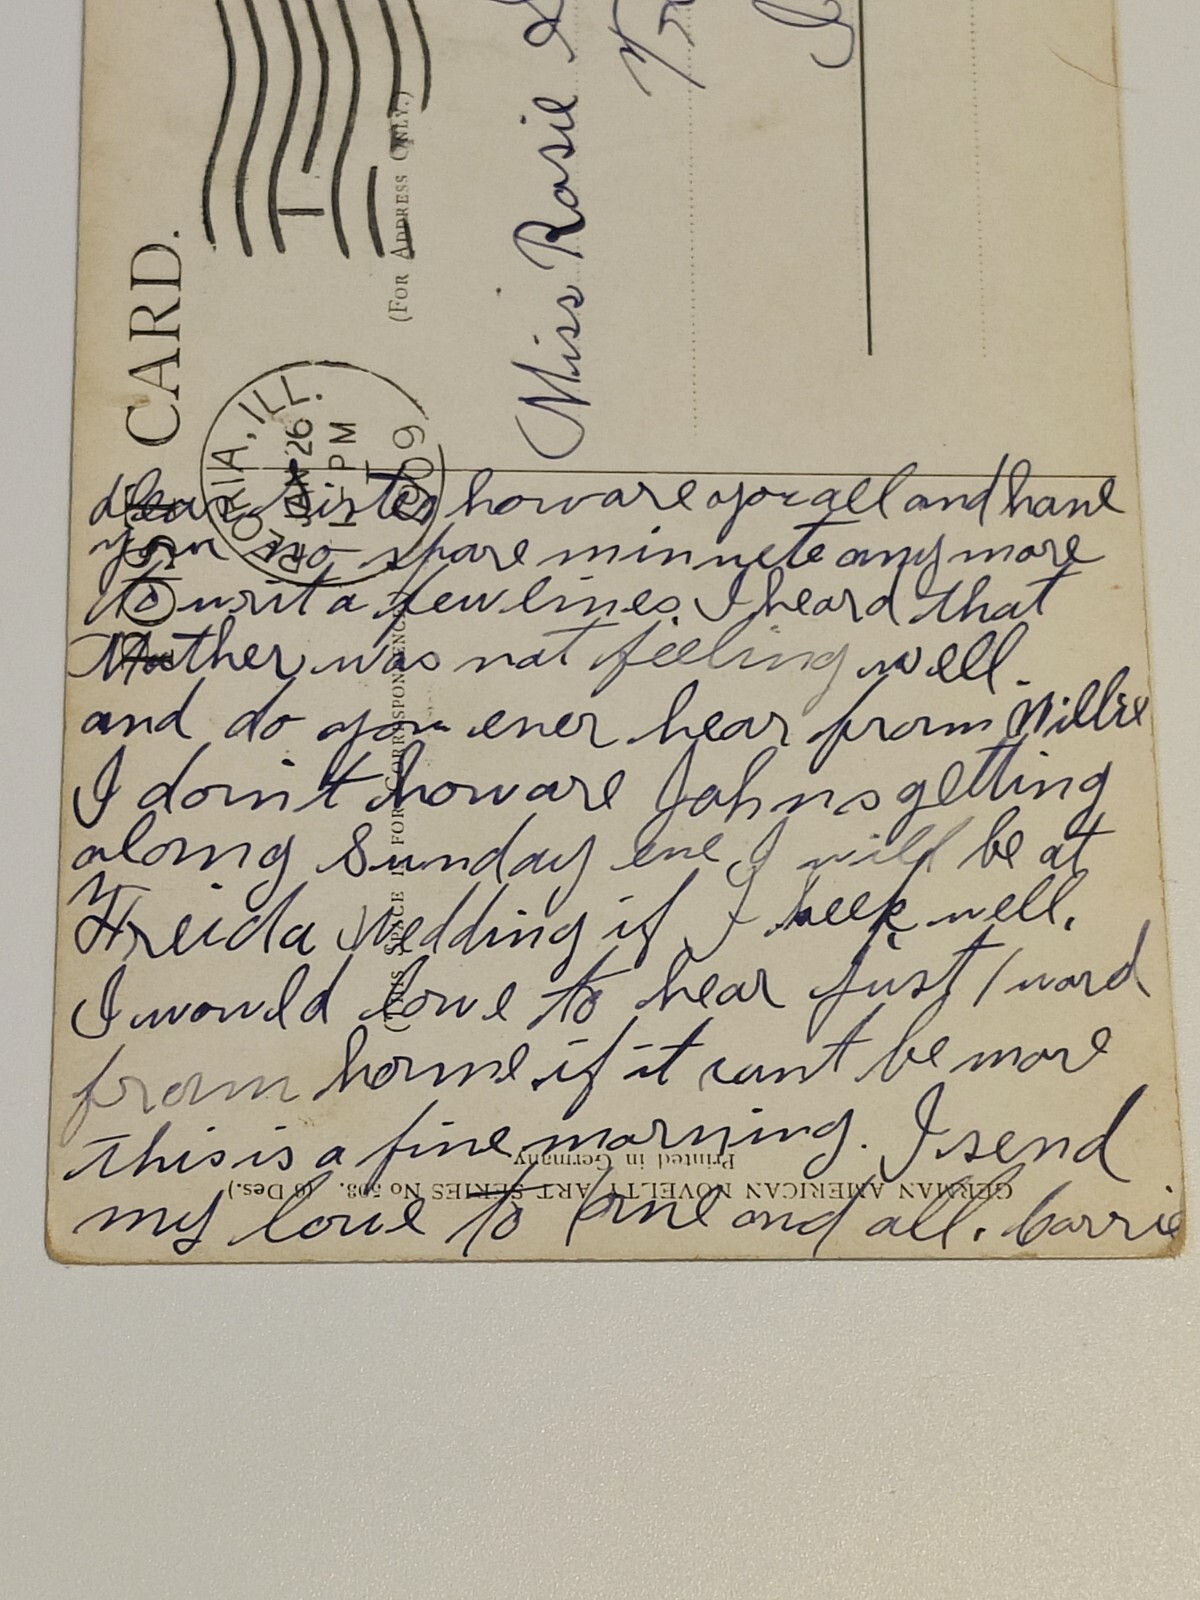 POST CARD.
(For Address Only.)
PEORIA, ILL.
JAN 26
1 PM
1909
T
Miss Rosie
dear Sister how are you all and have
you no spare minnete any more
to writ a few lines. I heard that
Mother was not feeling well.
and do you ever hear from Willie
I don't how are Johns getting
along Sunday eve I will be at
Freida Wedding if I keep well.
I would love to hear just 1 word
from home if it cant be more
this is a fine morning. I send
my love to one and all. Carrie
(This Space is for Correspondence
Printed in Germany
GERMAN AMERICAN NOVELTY ART SERIES No 598. (6 Des.)